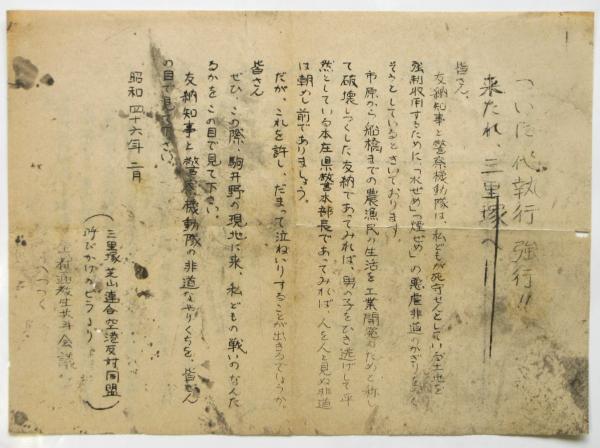 ついに代執行 強行!!
来たれ、三里塚へ――
皆さん。
友納知事と警察機動隊は、私どもが死守せんとしている土地を
強制収用するために、「水ぜめ」「煙ぜめ」の悪虐非道のかぎりをつく
そうとしているときいております。
市原から船橋までの農漁民の生活を工業開発のためと称し
て破壊しつくした友納であってみれば、男の子をひき逃げして平
然としている本庄県警本部長であってみれば、人を人と見ぬ非道
は朝めし前でありましょう。
だが、これを許し、だまって泣ねいりすることが出きるでしょうか。
皆さん
ぜひ、この際、駒井野の現地に来、私どもの戦いのなんた
るかをこの目で見て下さい。
友納知事と警察機動隊の非道なやりくちを、皆さん
の目で見て下さい。
昭和四十六年 二月
三里塚芝山連合空港反対同盟
(呼びかけのビラより)
共斗会議